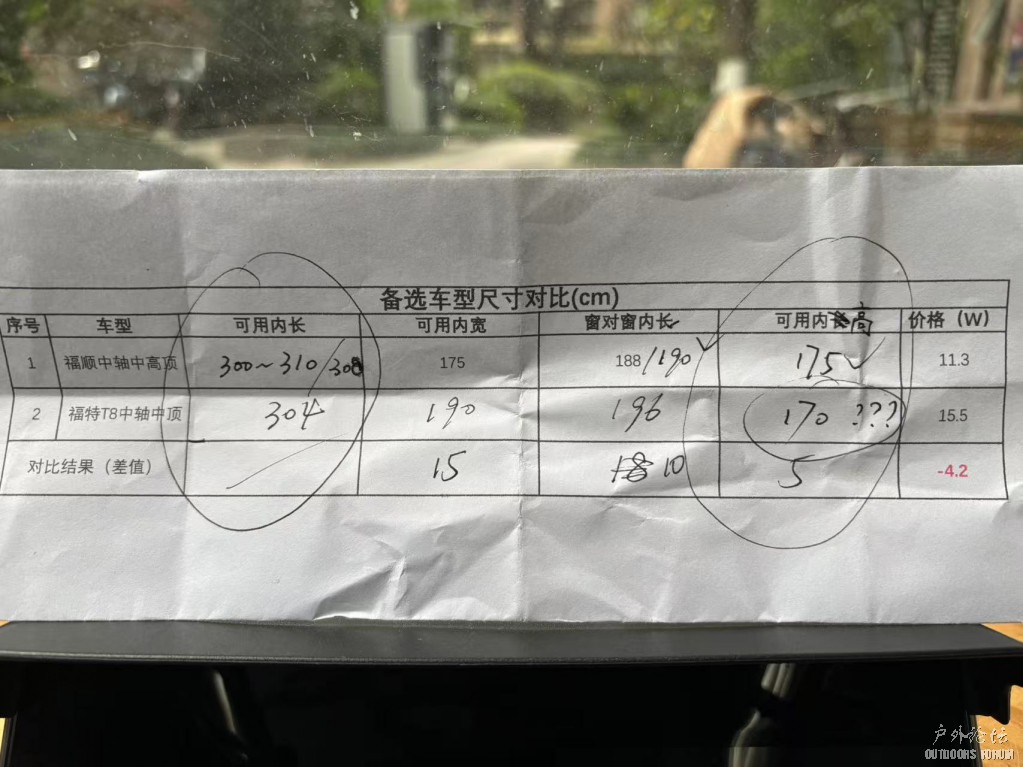 备选车型尺寸对比(cm)
序号 车型 可用内长 可用内宽 窗对窗内长 可用内高 价格（W）
1 福顺中轴中高顶 300~310/308 175 188/190 175✓ 11.3
2 福特T8中轴中顶 304 190 196 170 ??? 15.5
对比结果（差值） 15 10 5 -4.2
户外论坛
OUTDOORS FORUM